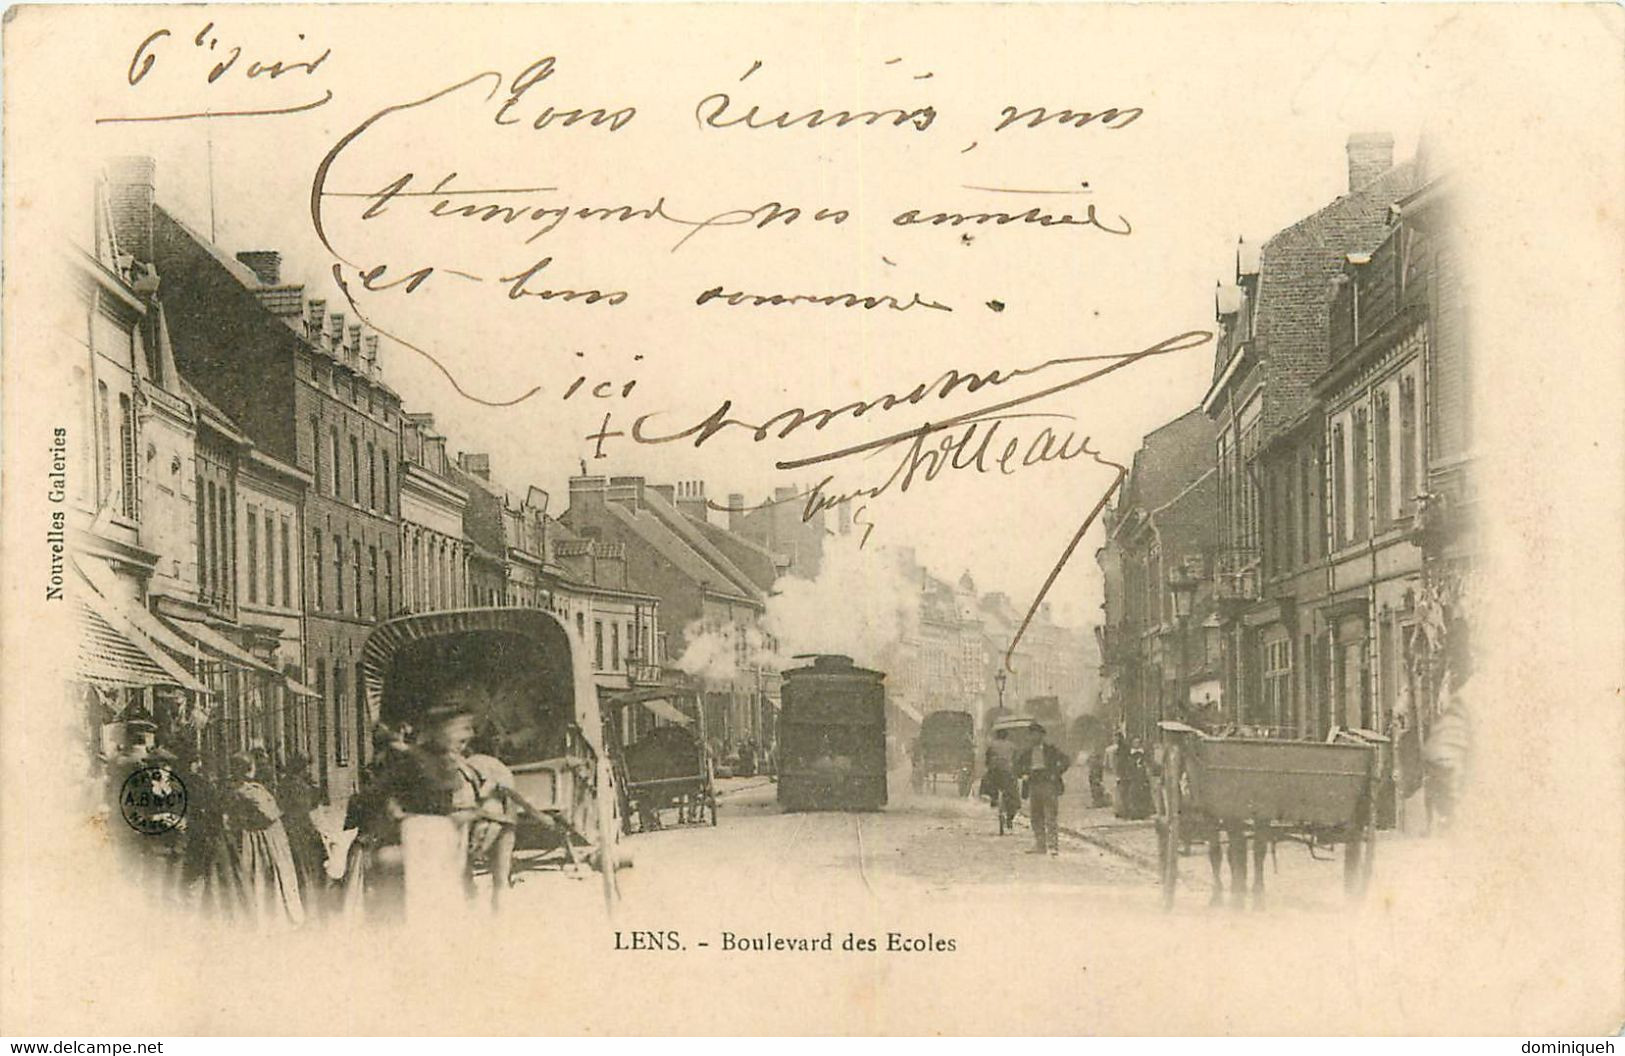 6h soir
Tous réunis, nous
t'envoyons nos amitiés
et bons souvenirs.
ici
+
Nouvelles Galeries
A.B & Cie
NANCY
LENS. - Boulevard des Ecoles
https://www.delcampe.net
dominiqueh